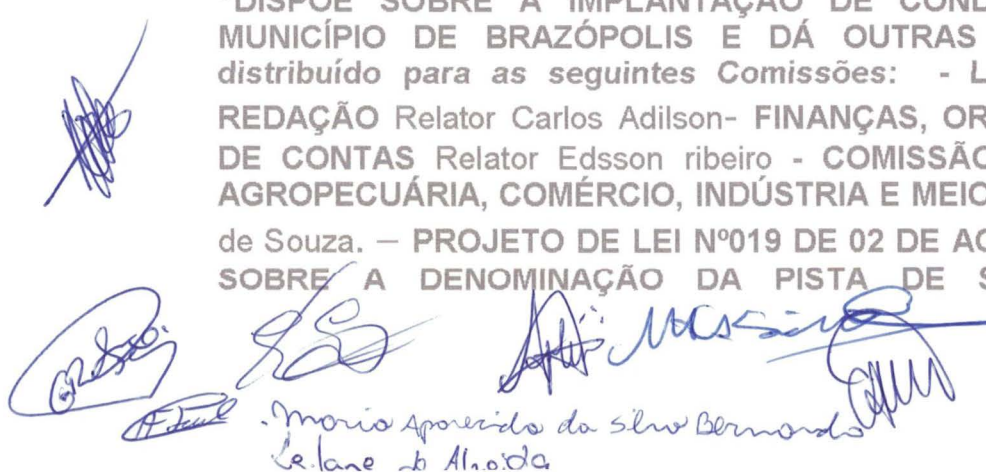 "DISPÕE SOBRE A IMPLANTAÇÃO DE COND
MUNICÍPIO DE BRAZÓPOLIS E DÁ OUTRAS
distribuído para as seguintes Comissões: - L
REDAÇÃO Relator Carlos Adilson- FINANÇAS, OR
DE CONTAS Relator Edsson ribeiro - COMISSÃO
AGROPECUÁRIA, COMÉRCIO, INDÚSTRIA E MEIO
de Souza. – PROJETO DE LEI Nº019 DE 02 DE AG
SOBRE A DENOMINAÇÃO DA PISTA DE S
Maria Aparecida da Silva Bernardo
Leilane de Almeida